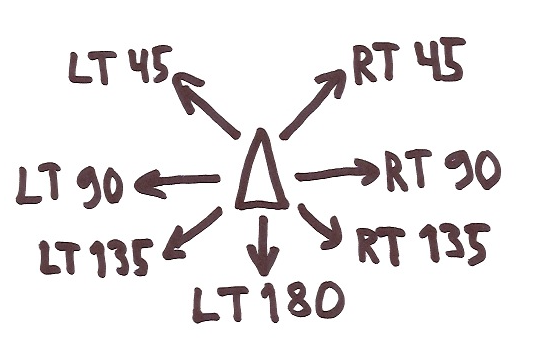 LT 45
RT 45
LT 90
RT 90
LT 135
RT 135
LT 180